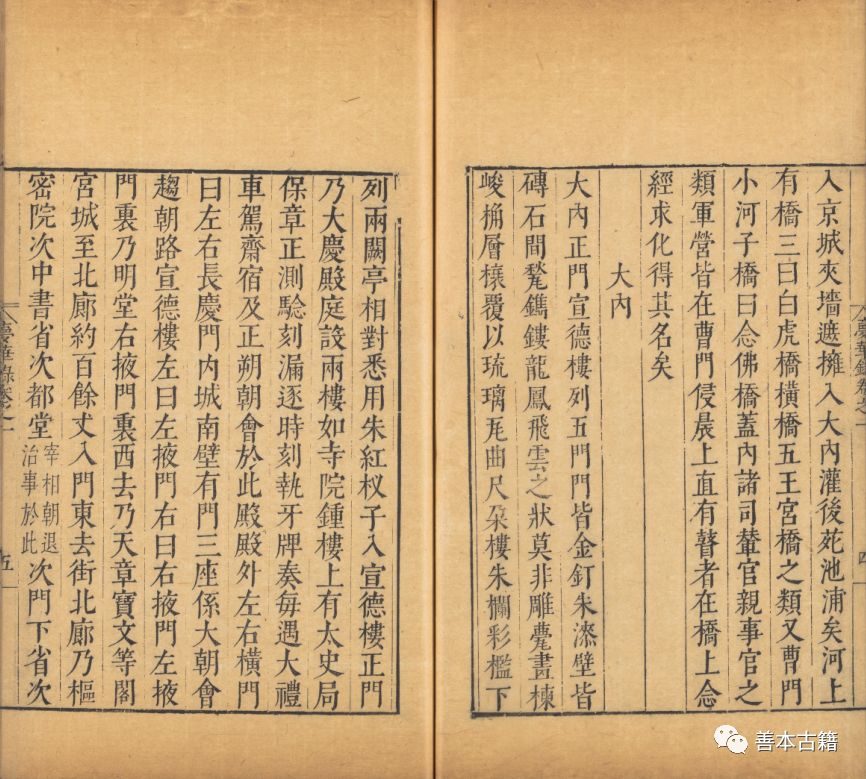 入京城夾墻遮擁入大內灌後苑池浦矣河上
有橋三曰白虎橋橫橋五王宮橋之類又曹門
小河子橋曰念佛橋蓋內諸司輦官親事官之
類軍營皆在曹門侵晨上直有瞽者在橋上念
經求化得其名矣
大內
大內正門宣德樓列五門門皆金釘朱漆壁皆
磚石間甃鐫鏤龍鳳飛雲之狀莫非雕甍畫棟
峻桷層榱覆以琉璃瓦曲尺朶樓朱欄彩檻下
夢華錄卷之一
四
列兩闕亭相對悉用朱紅杈子入宣德樓正門
乃大慶殿庭設兩樓如寺院鍾樓上有太史局
保章正測驗刻漏逐時刻執牙牌奏每遇大禮
車駕齋宿及正朔朝會於此殿殿外左右橫門
曰左右長慶門內城南壁有門三座係大朝會
趨朝路宣德樓左曰左掖門右曰右掖門左掖
門裏乃明堂右掖門裏西去乃天章寶文等閣
宮城至北廊約百餘丈入門東去街北廊乃樞
密院次中書省次都堂宰相朝退治事於此次門下省次
夢華錄卷之一
五
善本古籍